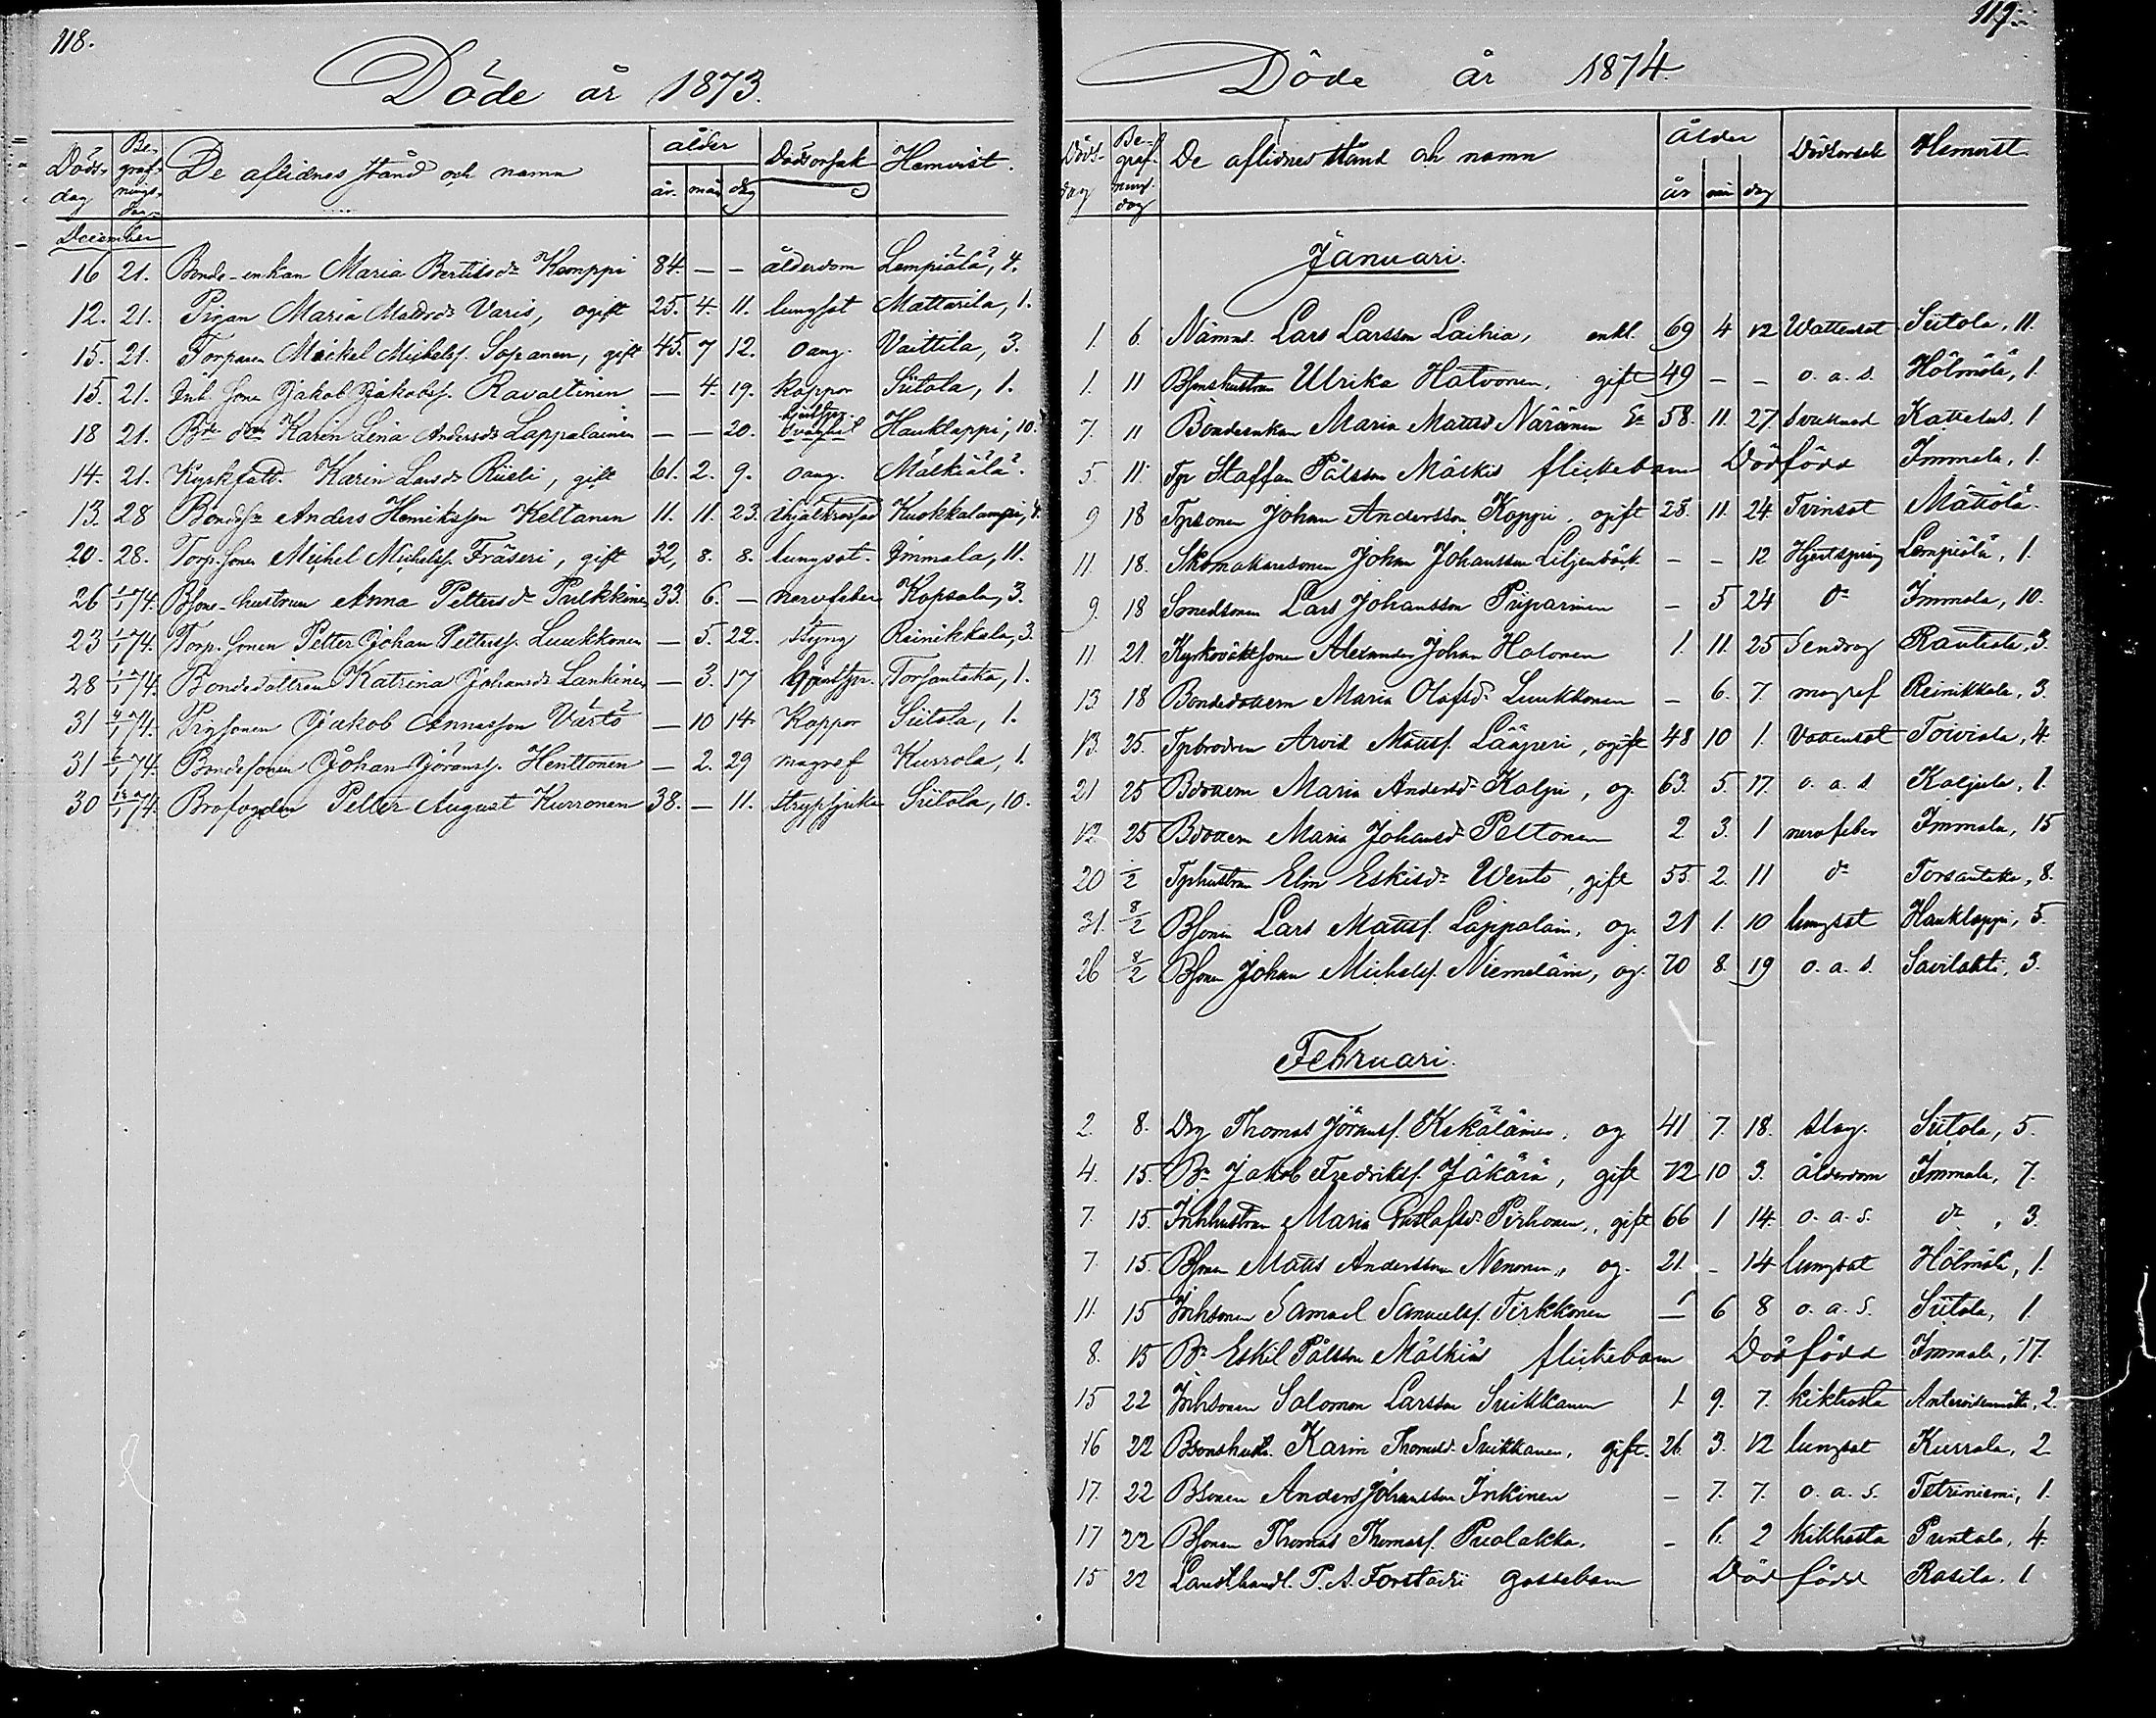 118.
Döde år 1873.
Döds- dag Be- graf- nings- dag De aflidnes stånd och namn ålder år. mån dag Dödsorsak Hemvist.
December
16 21. Bonde-enkan Maria Bertilsdr Kamppi 84. — — ålderdom Lempiälä, 4.
12. 21. Pigan Maria Madsdr Varis, ogift 25. 4. 11. lungsot Mattarila, 1.
15. 21. Torparen Mickel Michelsf. Sopanen, gift 45. 7 12. oang. Vaittila, 3.
15. 21. Inh. sone Jakob Jakobsf. Ravattinen — 4. 19. koppor Siitola, 1.
18 21. Bde dtr Karin Lena Andersdr Lappalainen — — 20. Hauklappi, 10.
14. 21. Kyrkfatt. Karin Larsdr Riieli, gift 61. 2. 9. oang. Mälkiälä.
13. 28 Anders Henriksson Keltanen 11. 11. 23. ihjälkrossad Kuokkalampi, 4.
20. 28. Torp. sonen Michel Michelsf. Träseri, gift 32, 8. 8. lungsot. Immala, 11.
26 1/1 74. Bsons-hustrun Anna Pettersdr Pulkkinen 33. 6. — nervfeber Kopsala, 3.
23 1/1 74. Torp. sonen Petter Johan Pettersf. Luukkonen — 5. 22. styng Reinikkala, 3.
28 1/1 74. Bondedottren Katrina Johansdr Lankinen — 3. 17 Torsantaka, 1.
31 4/1 74. Pigsonen Jakob Annasson Värtö — 10 14. Koppor Siitola, 1.
31 74. Bondesonen Johan Jöransf. Henttonen — 2. 29 magref Kurrola, 1.
30 74. Brofogden Petter August Kurronen 38. — 11. strypsjuka Siitola, 10.
119.
Döde år 1874.
Döds- dag Be- graf- nings- dag De aflidnes stånd och namn ålder år mån dag Dödsorsak Hemvist
Januari.
1. 6. Nämnd. Lars Larsson Laihia, enkl. 69 4 12 Wattensot Siitola, 11.
1. 11 Bsonshustrun Ulrika Hatvonen, gift 49 — — o. a. s. Hölmölä, 1.
7. 11 Bondeenkan Maria Mattsd. Näränen 58. 11. 27. 1
5. 11. Tpr Staffan Pålsson Mälkiä flickebarn Dödfödd Immala, 1.
9 18 Tpsonen Johan Andersson Koppi, ogift 28. 11. 24. Tvinsot Mättölä.
11. 18. Skomakaresonen Johan Johansson — — 12 Hjertspring Lempiälä, 1.
9. 18 Smedsonen Lars Johansson Piiparinen — 5 24 do Immala, 10.
11. 21. Kyrkovaktsonen Alexander Johan Halonen 1. 11. 25 Rautiala, 3.
13 18 Bondedottern Maria Olafsdr Luukkonen — 6. 7. magref Reinikkala, 3.
13. 25. Tpbrodren Arvid Mattsf. Lääperi, ogift 48 10 1. Vattensot Toiviala, 4.
21 25 Bdottern Maria Andersdr Kalpi, og. 63. 5. 17. o. a. s. Kaljula, 1.
12. 25 Bdottern Maria Johansdr Peltonen 2 3. 1 nervfeber Immala, 15
20 1/2 Tphustrun Elin Eskilsdr Wento, gift 55. 2. 11 do Torsantaka, 8.
31. 8/2 Bsonen Lars Mattsf. Lappalain, og. 21 1. 10 lungsot Hauklappi, 5.
26 8/2 Bsonen Johan Michelsf. Niemeläin, og. 70 8. 19 o. a. s. Savilahti, 3.
Februari.
2. 8. Drg Thomas Jöransf. Kekäläinen, og. 41 7. 18. slag. Siitola, 5.
4. 15. Be Jakob Fredriksf. Jäkärä, gift 72 10 3. ålderdom Immala, 7.
7. 15. Inhhustrun Maria Gustafsdr Pirhonen, gift 66 1 14. o. a. s. do, 3.
7. 15. Bsonen Matts Andersson Nenonen, og. 21. — 14 lungsot Hölmölä, 1.
11. 15 Inhsonen Samuel Samuelsf. Tirkkonen — 6 8 o. a. s. Siitola, 1.
8. 15 Be Eskil Pålsson Mälkiä flickebarn Dödfödd Immala, 17.
15 22 Inhsonen Salomon Larsson Suikkanen 1. 9. 7. kikhosta 2.
16 22 Bsonshustr. Karin Thomasd. Suikkanen, gift. 26. 3. 12 lungsot Kurrola, 2
17. 22 Bsonen Anders Johansson Inkinen — 7. 7. o. a. s. Tetriniemi, 1.
17 22 Bsonen Thomas Thomasf. Puolakka. — 6. 2 kikhosta Puntala, 4.
15 22 Landthandl. P. A. Forstadi gossebarn Dödfödd Rasila. 1